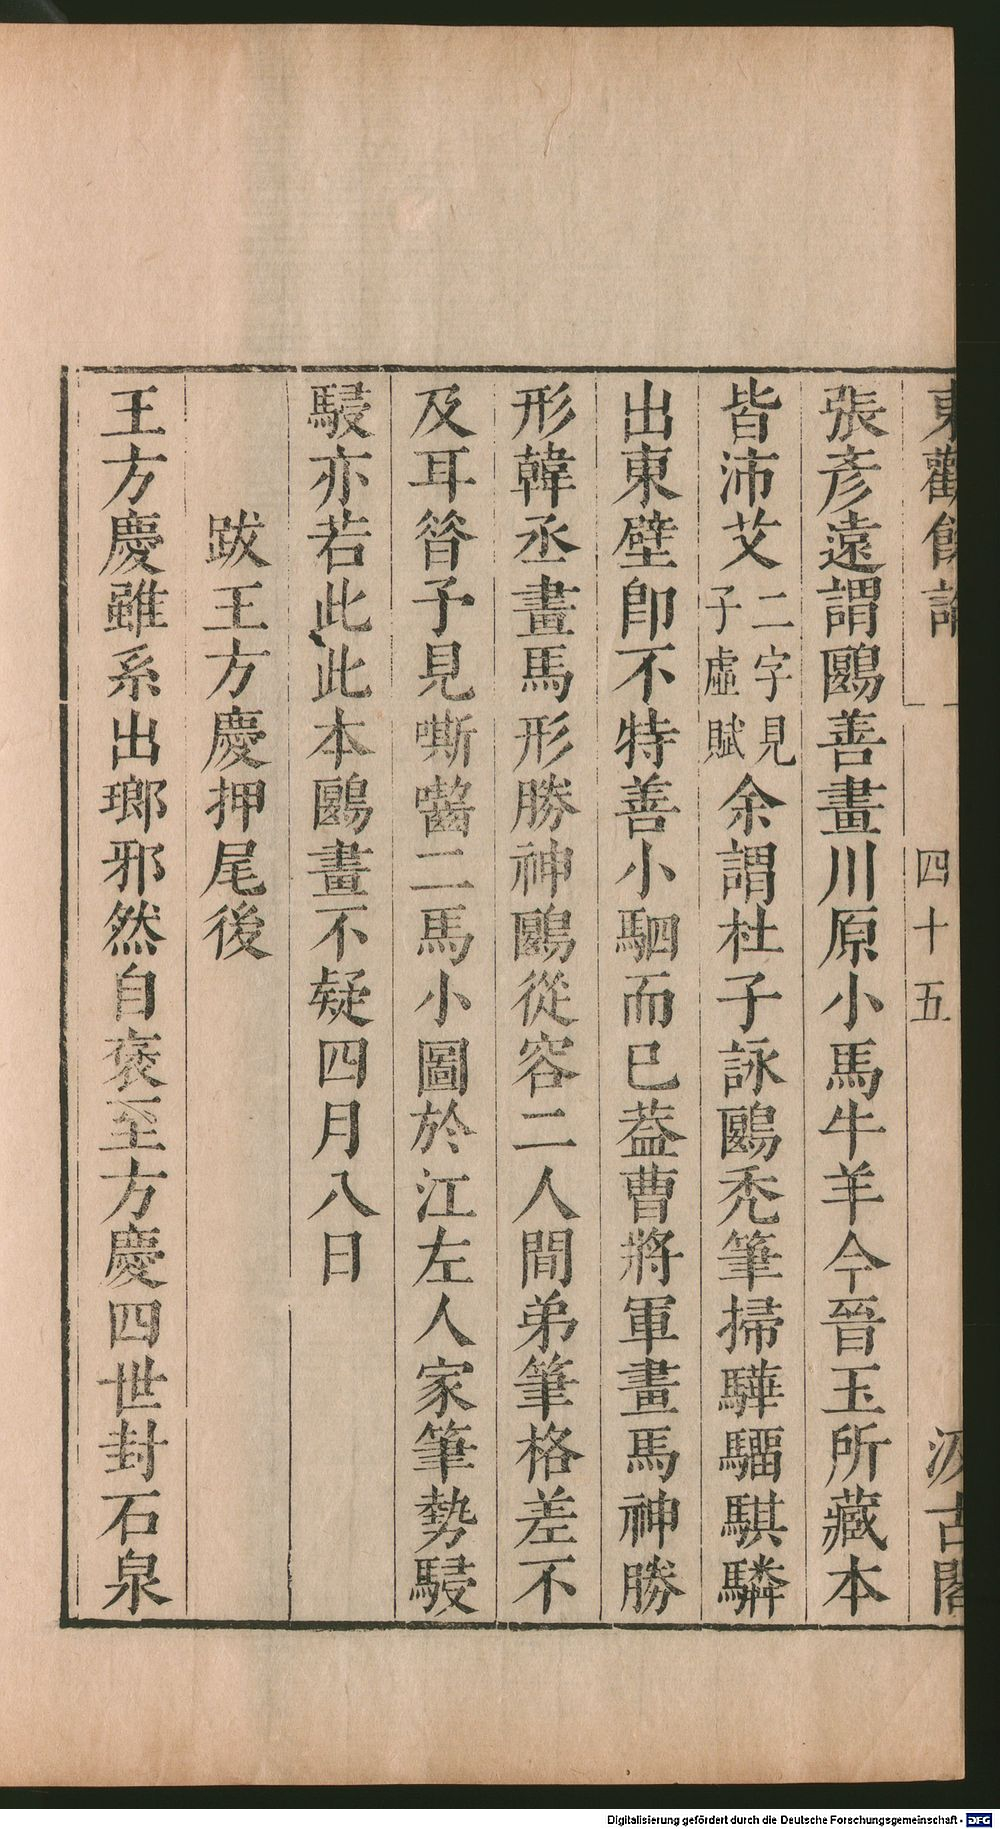 東觀餘論 一 四十五 汲古閣
張彥遠謂鷗善畫川原小馬牛羊今晉玉所藏本
皆沛艾二字見子虛賦余謂杜子詠鷗禿筆掃驊騮騏驎
出東壁卽不特善小駟而巳葢曹將軍畫馬神勝
形韓丞畫馬形勝神鷗從容二人間弟筆格差不
及耳昝予見嘶齧二馬小圖於江左人家筆勢駸
駸亦若此此本鷗畫不疑四月八日
跋王方慶押尾後
王方慶雖系出瑯邪然自褒至方慶四世封石泉
Digitalisierung gefördert durch die Deutsche Forschungsgemeinschaft - DFG